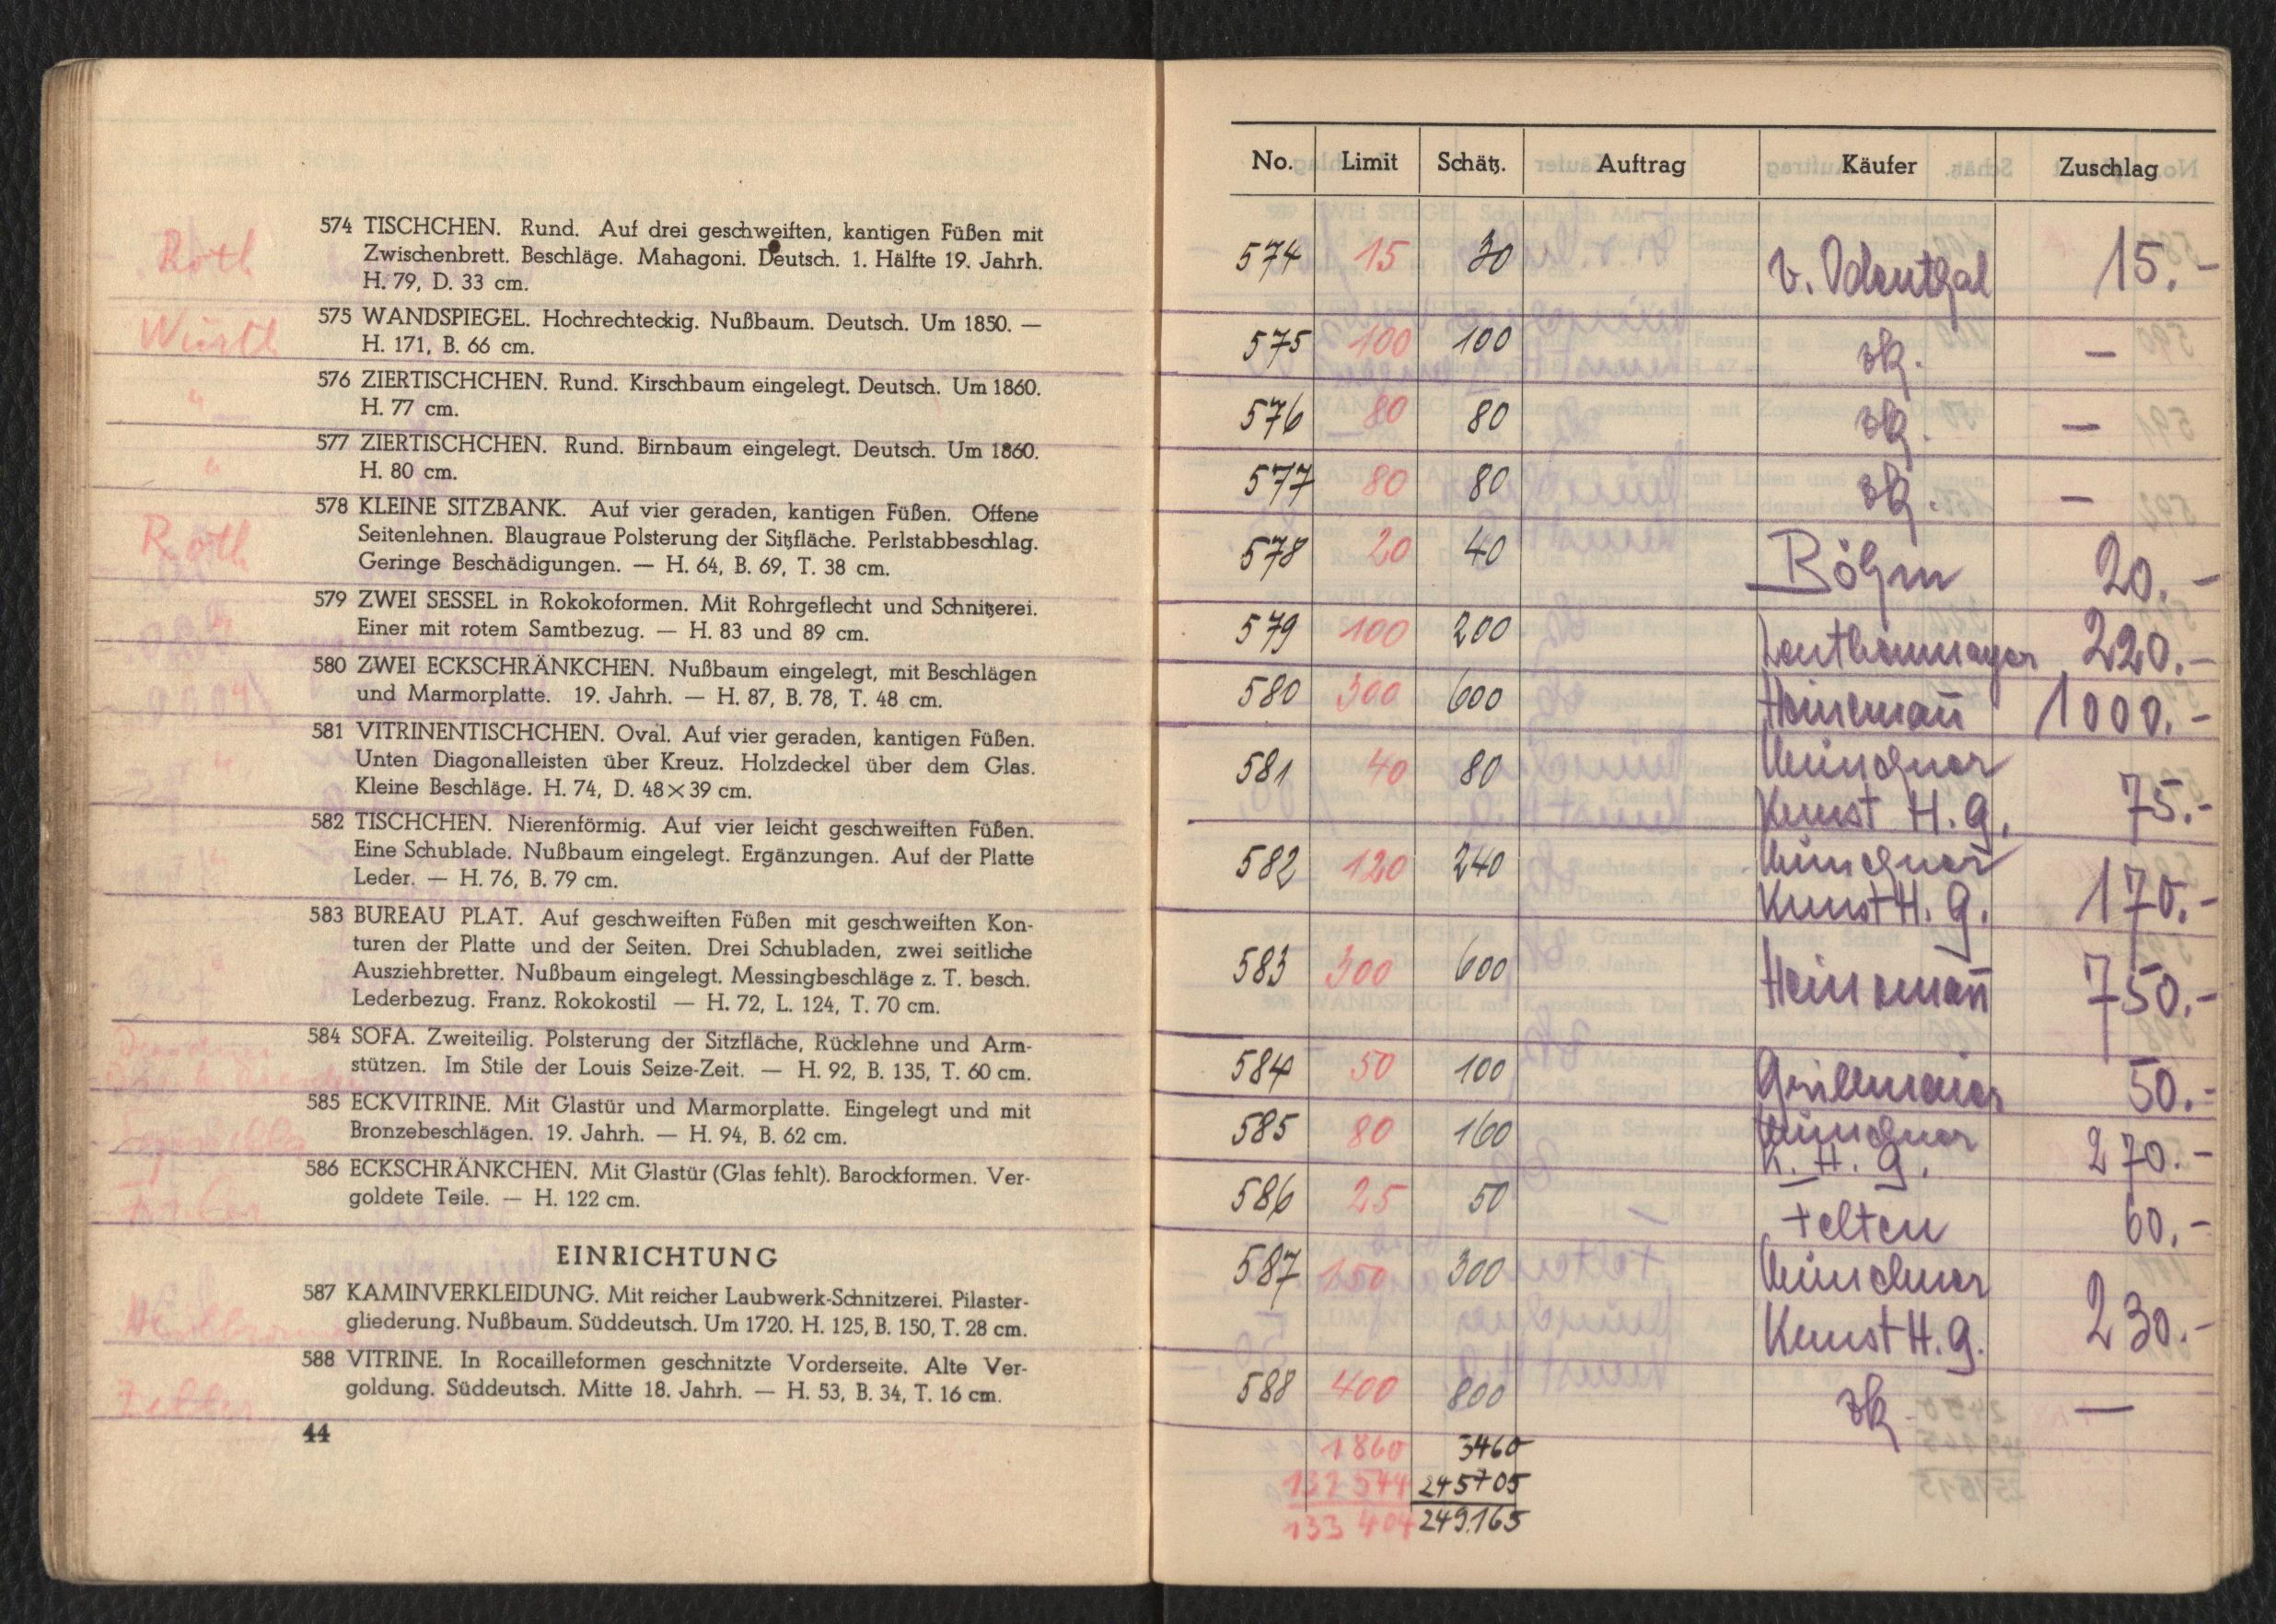 Roth
574 TISCHCHEN. Rund. Auf drei geschweiften, kantigen Füßen mit
Zwischenbrett. Beschläge. Mahagoni. Deutsch. 1. Hälfte 19. Jahrh.
H. 79, D. 33 cm.
Würth
575 WANDSPIEGEL. Hochrechteckig. Nußbaum. Deutsch. Um 1850. —
H. 171, B. 66 cm.
"
576 ZIERTISCHCHEN. Rund. Kirschbaum eingelegt. Deutsch. Um 1860.
H. 77 cm.
"
577 ZIERTISCHCHEN. Rund. Birnbaum eingelegt. Deutsch. Um 1860.
H. 80 cm.
Roth
578 KLEINE SITZBANK. Auf vier geraden, kantigen Füßen. Offene
Seitenlehnen. Blaugraue Polsterung der Sitzfläche. Perlstabbeschlag.
Geringe Beschädigungen. — H. 64, B. 69, T. 38 cm.
"
579 ZWEI SESSEL in Rokokoformen. Mit Rohrgeflecht und Schnitzerei.
Einer mit rotem Samtbezug. — H. 83 und 89 cm.
"
580 ZWEI ECKSCHRÄNKCHEN. Nußbaum eingelegt, mit Beschlägen
und Marmorplatte. 19. Jahrh. — H. 87, B. 78, T. 48 cm.
"
581 VITRINENTISCHCHEN. Oval. Auf vier geraden, kantigen Füßen.
Unten Diagonalleisten über Kreuz. Holzdeckel über dem Glas.
Kleine Beschläge. H. 74, D. 48×39 cm.
"
582 TISCHCHEN. Nierenförmig. Auf vier leicht geschweiften Füßen.
Eine Schublade. Nußbaum eingelegt. Ergänzungen. Auf der Platte
Leder. — H. 76, B. 79 cm.
"
583 BUREAU PLAT. Auf geschweiften Füßen mit geschweiften Kon-
turen der Platte und der Seiten. Drei Schubladen, zwei seitliche
Ausziehbretter. Nußbaum eingelegt. Messingbeschläge z. T. besch.
Lederbezug. Franz. Rokokostil — H. 72, L. 124, T. 70 cm.
584 SOFA. Zweiteilig. Polsterung der Sitzfläche, Rücklehne und Arm-
stützen. Im Stile der Louis Seize-Zeit. — H. 92, B. 135, T. 60 cm.
585 ECKVITRINE. Mit Glastür und Marmorplatte. Eingelegt und mit
Bronzebeschlägen. 19. Jahrh. — H. 94, B. 62 cm.
586 ECKSCHRÄNKCHEN. Mit Glastür (Glas fehlt). Barockformen. Ver-
goldete Teile. — H. 122 cm.
EINRICHTUNG
587 KAMINVERKLEIDUNG. Mit reicher Laubwerk-Schnitzerei. Pilaster-
gliederung. Nußbaum. Süddeutsch. Um 1720. H. 125, B. 150, T. 28 cm.
588 VITRINE. In Rocailleformen geschnitzte Vorderseite. Alte Ver-
goldung. Süddeutsch. Mitte 18. Jahrh. — H. 53, B. 34, T. 16 cm.
44
No. Limit Schätz. Auftrag Käufer Zuschlag
574 15 30 v. Odenthal 15.-
575 100 100 zk. —
576 80 80 zk. —
577 80 80 zk. —
578 20 40 Böhm 20.-
579 100 200 220.-
580 300 600 Heinemann 1000.-
581 40 80 Münchner
Kunst H. G. 75.-
582 120 240 Münchner
Kunst H. G. 170.-
583 300 600 Heinemann 750.-
584 50 100 Grillmaier 50.-
585 80 160 Münchner
K. H. G. 270.-
586 25 50 Felten 60.-
587 150 300 Münchner
Kunst H. G. 230.-
588 400 800 zk —
1860 3460
132 544 245705
133 404 249.165